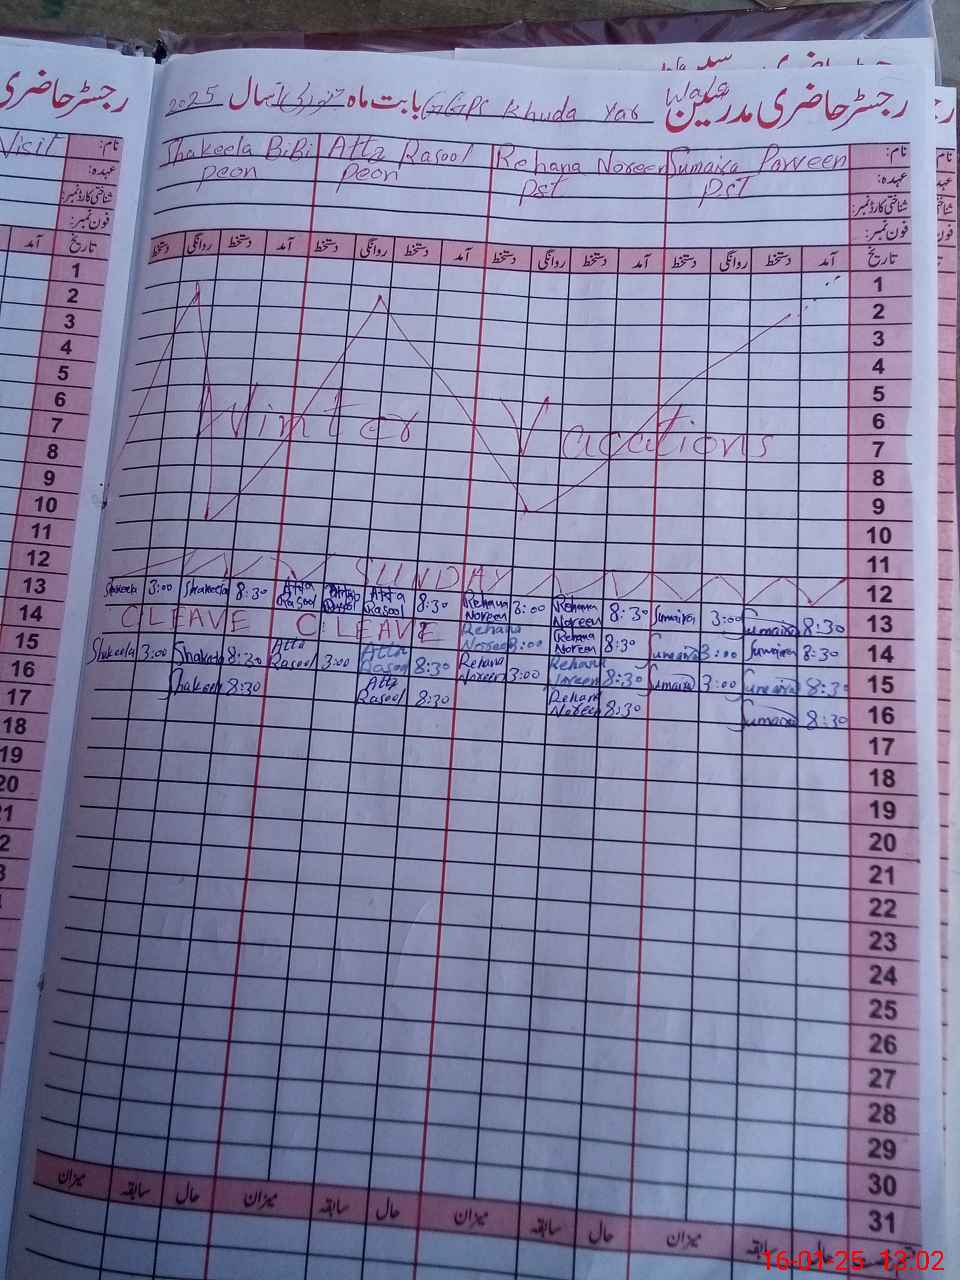 رجسٹر حاضری مدرسین
GGPS Khuda Yar
بابت ماہ جنوری
سال 2025
نام:
Sumaira Parveen
Rehana Noreen
Atta Rasool
Shakeela BiBi
عہدہ:
PST
PST
peon
peon
شناختی کارڈ نمبر:
فون نمبر:
تاریخ آمد دستخط روانگی دستخط آمد دستخط روانگی دستخط آمد دستخط روانگی دستخط آمد دستخط روانگی دستخط
1
2
3
4
5
6
Winter Vacations
7
8
9
10
11
12 SUNDAY
13 8:30 Sumaira 3:00 Sumaira 8:30 Rehana Noreen 3:00 Rehana Noreen 8:30 Atta Rasool Atta Rasool Atta Rasool 8:30 Shakeela 3:00 Shakeela
14 8:30 Sumaira 3:00 Sumaira 8:30 Rehana Noreen 3:00 Rehana Noreen C.LEAVE CLEAVE
15 8:30 Sumaira 3:00 Sumaira 8:30 Rehana Noreen 3:00 Rehana Noreen 8:30 Atta Rasool 3:00 Atta Rasool 8:30 Shakeela 3:00 Shakeela
16 8:30 Sumaira 8:30 Rehana Noreen 8:30 Atta Rasool 8:30 Shakeela
17
18
19
20
21
22
23
24
25
26
27
28
29
30
31
حال سابقہ میزان حال سابقہ میزان حال سابقہ میزان حال سابقہ میزان
رجسٹر حاضری
Visit
نام:
عہدہ:
شناختی کارڈ نمبر:
فون نمبر:
تاریخ آمد
1
2
3
4
5
6
7
8
9
10
11
12
13
14
15
16
17
18
19
20
16-01-25 13:02